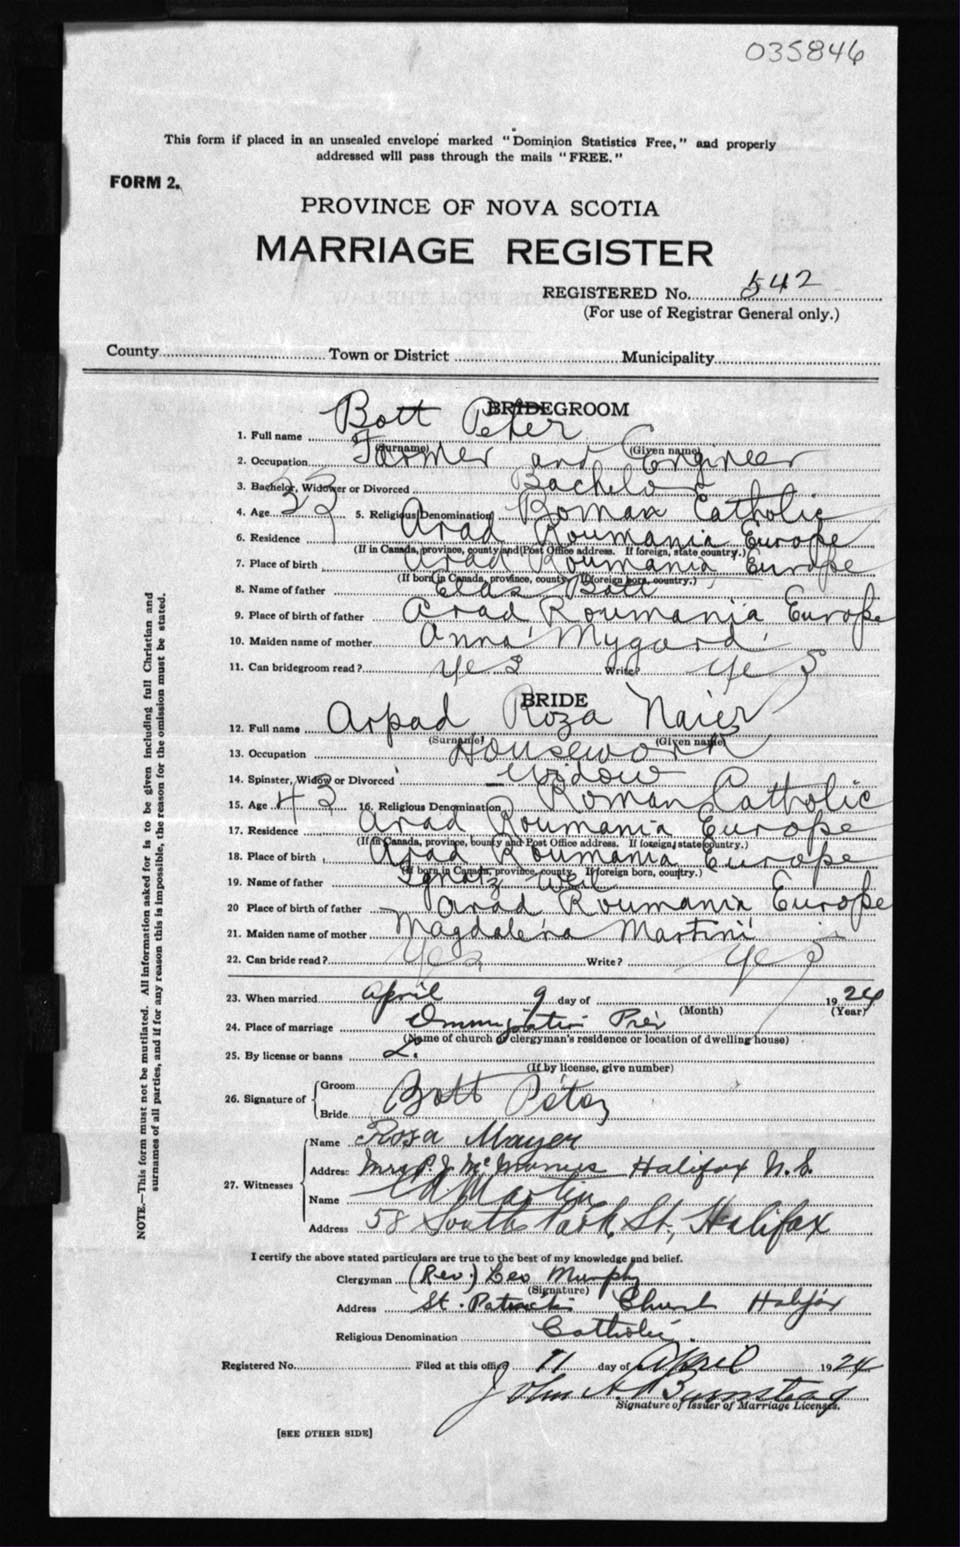 035846
This form if placed in an unsealed envelope marked "Dominion Statistics Free," and properly
addressed will pass through the mails "FREE."
FORM 2.
PROVINCE OF NOVA SCOTIA
MARRIAGE REGISTER
REGISTERED No. 542
(For use of Registrar General only.)
County Town or District Municipality
BRIDEGROOM
1. Full name Bott Peter
(Surname) (Given name)
2. Occupation Farmer and Engineer
3. Bachelor, Widower or Divorced Bachelor
4. Age 33 5. Religious Denomination Roman Catholic
6. Residence Arad Roumania Europe
(If in Canada, province, county and Post Office address. If foreign, state country.)
7. Place of birth Arad Roumania Europe
(If born in Canada, province, county. If foreign born, country.)
8. Name of father Elas Bott
9. Place of birth of father Arad Roumania Europe
10. Maiden name of mother Anna Mygard
11. Can bridegroom read? yes Write? yes
BRIDE
12. Full name Arpad Roza Naier
(Surname) (Given name)
13. Occupation Housework
14. Spinster, Widow or Divorced Widow
15. Age 43 16. Religious Denomination Roman Catholic
17. Residence Arad Roumania Europe
(If in Canada, province, county and Post Office address. If foreign, state country.)
18. Place of birth Arad Roumania Europe
(If born in Canada, province, county. If foreign born, country.)
19. Name of father Ignatz
20 Place of birth of father Arad Roumania Europe
21. Maiden name of mother Magdalena Martini
22. Can bride read? Yes Write? Yes
23. When married April 9 day of 1924
(Month) (Year)
24. Place of marriage Immigration Pier
(Name of church or clergyman's residence or location of dwelling house)
25. By license or banns L.
(If by license, give number)
26. Signature of Groom
Bott Péter
Bride
27. Witnesses Name Rosa Mayer
Address Mrs P. J. McManus Halifax N.S.
Name Martin
Address 58 South Park St, Halifax
I certify the above stated particulars are true to the best of my knowledge and belief.
Clergyman (Rev.) Leo Murphy
(Signature)
Address St. Patrick's Church Halifax
Religious Denomination Catholic.
Registered No. Filed at this office 11 day of April 1924
John A.
Signature of Issuer of Marriage Licenses.
[SEE OTHER SIDE]
NOTE.—This form must not be mutilated. All information asked for is to be given including full Christian and
surnames of all parties, and if for any reason this is impossible, the reason for the omission must be stated.